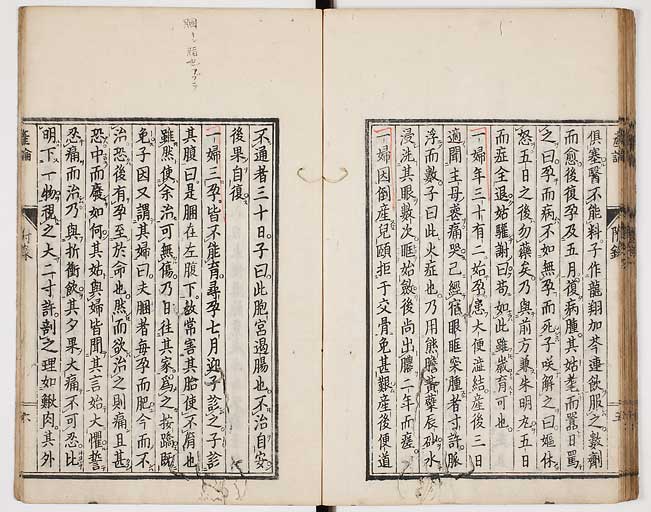 俱塞醫不能料子作龍翔加芩連飲服之數劑
而愈後復孕及五月復病腫其姑耄而嚚日罵
之曰孕而病不如無孕而死子咲解之曰嫗休
怒五日之後勿藥矣乃與前方兼朱明丸五日
而症全退姑驩謝曰苟如此雖歲育可也
一婦年三十有二始孕患大便溢結産後三日
適聞主母喪痛哭已經宿眼眶突腫者寸許脈
浮而數子曰此火症也乃用熊膽黃蘗辰砂水
浸洗其眼數次眶始斂後尚出膿二年而瘥
一婦因倒産兒頤拒于交骨免甚艱産後便道
不通者三十日子曰此胞宮過腸也不治自安
後果自復
一婦三孕皆不能育尋孕七月迎子診之子診
其腹曰是胭在左腹下故常害其胎使不育也
雖然使余治可無傷乃日往其家為之按蹻既
免子因又謂其婦曰夫胭者每孕而肥今而不
治恐後有孕至於命也然而欲治之則痛且甚
恐中而廢如何其姑與婦皆聞其言始大懼誓
忍痛而治乃與折衝飲其夕果大痛不可忍比
明下一物視之大二寸許剖之理如歠肉其外
産論
附錄
六